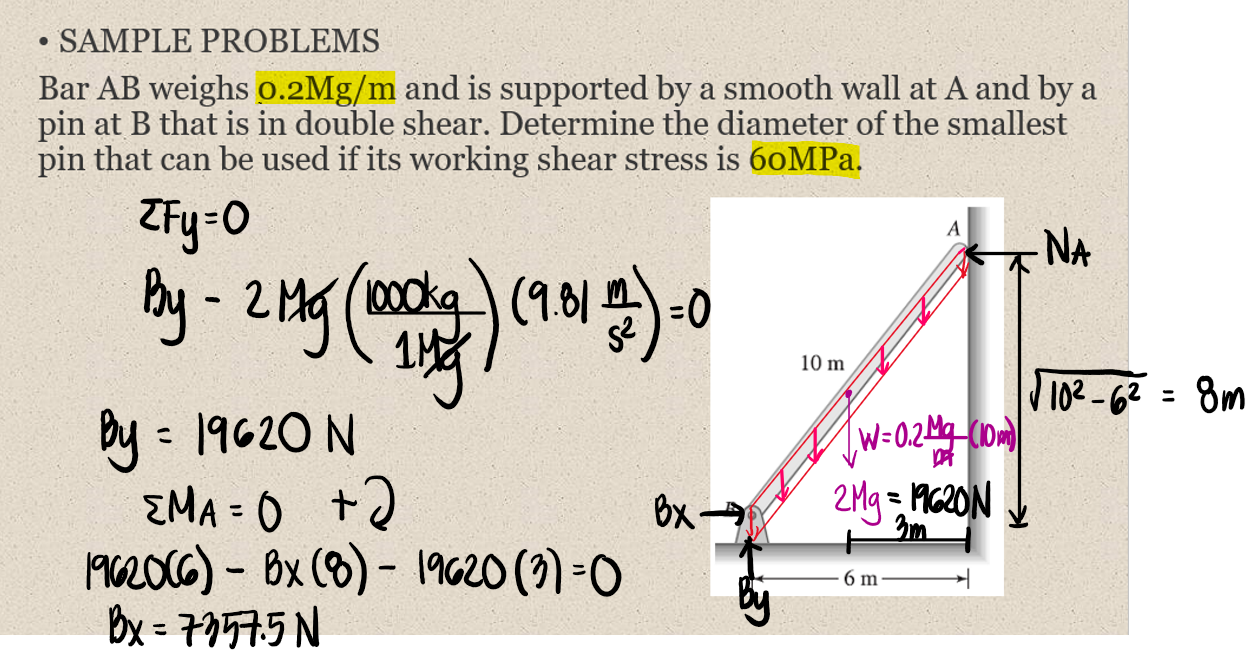 • SAMPLE PROBLEMS
Bar AB weighs 0.2Mg/m and is supported by a smooth wall at A and by a
pin at B that is in double shear. Determine the diameter of the smallest
pin that can be used if its working shear stress is 60MPa.
ΣFy=0
By - 2 Mg (1000kg / 1Mg) (9.81 m/s²) = 0
By = 19620 N
ΣMA = 0 +
19620(6) - Bx(8) - 19620(3) = 0
Bx = 7357.5 N
A
NA
10 m
√10²-6² = 8m
W=0.2 Mg/m (10m)
2Mg = 19620N
Bx
3m
6 m
By